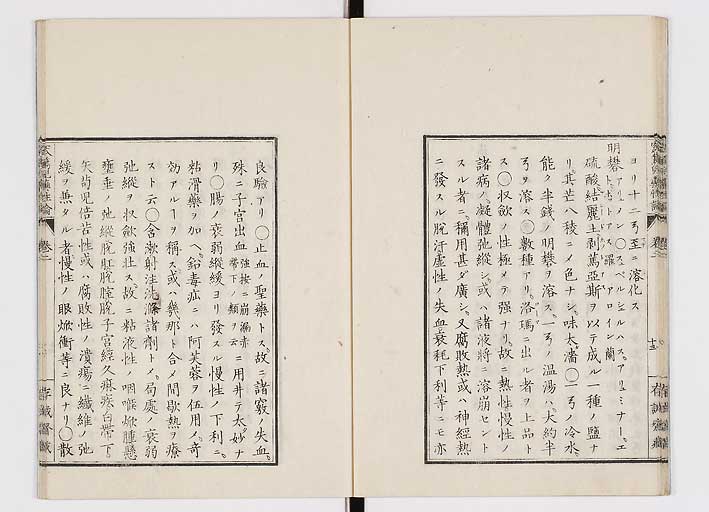 ヨリ十二弓至ニ溶化ス
明礬
硫酸結麗土剥篤亞斯ヲ以テ成ル一種ノ鹽ナ
リ其芒八稜ニメ色ナシ味太濇〇一弓ノ冷水
能ク半銭ノ明礬ヲ溶ス一弓ノ温湯ハ大約半
弓ヲ溶ス数種アリ洛瑪ニ出ル者ヲ上品ト
ス〇収歛ノ性極メテ强ナリ故ニ熱性慢性ノ
諸病ハ凝體弛縱シ或ハ諸液將ニ溶崩セント
スル者ニ稱用甚ダ廣シ又腐敗熱或ハ神經熱
ニ發スル脱汗虚性ノ失血衰耗下利等ニモ亦
良驗アリ〇止血ノ聖藥トス故ニ諸竅ノ失血
殊ニ子宮出血強按ニ崩漏赤帯下ノ類ヲ云ニ用井テ太妙ナ
リ〇腸ノ衰弱縱緩ヨリ發スル慢性ノ下利ニ
粘滑藥ヲ加ヘ鉛毒疝ニハ阿芙蓉ヲ伍用メ奇
効アルヿヲ稱ス或ハ幾那ト合メ間歇熱ヲ療
スト云〇含漱射注洗滌諸劑トメ局處ノ衰弱
弛縱ヲ収歛強壮ス故ニ粘液性ノ咽喉焮腫懸
壅垂ノ弛縱脱肛脱膣脱子宮經久痳疾白帯下
失苟兒倍苦性或ハ腐敗性ノ潰瘍ニ纎維ノ弛
緩ヲ兼タル者慢性ノ眼焮衝等ニ良ナリ〇散